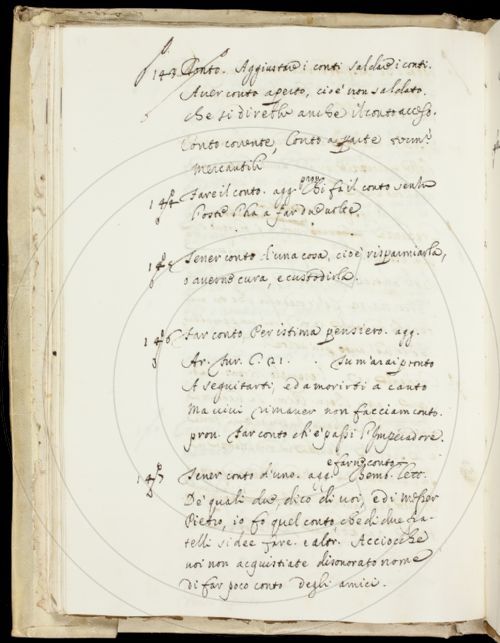 143 Conto. Aggiustare i conti saldare i conti.
Aver conto aperto, cioè non saldato.
che si direbbe anche il conto acceso.
Conto corrente, Conto a parte term.
mercantili
144 Fare il conto. agg. prov. Chi fa il conto senza
l'oste l'ha a far due volte.
145 Tener conto d'una cosa, cioè risparmiarla,
o averne cura, e custodirla.
146 Far conto Per istima pensiero. agg.
Ar. Fur. C. 21. Tu m'arai pronto
A seguitarti, ed a morirti a canto
Ma vivi rimaner non facciam conto.
prov. Far conto ch'e' passi l'Imperadore.
147 Tener conto d'uno. agg. e farne conto Bemb. lett.
De' quali due dico di voi, e di Messer
Pietro, io fo quel conto, che di due fra-
telli si dee fare. e altr. Acciocchè
voi non acquistiate disonorato nome
di far poco conto degli amici.